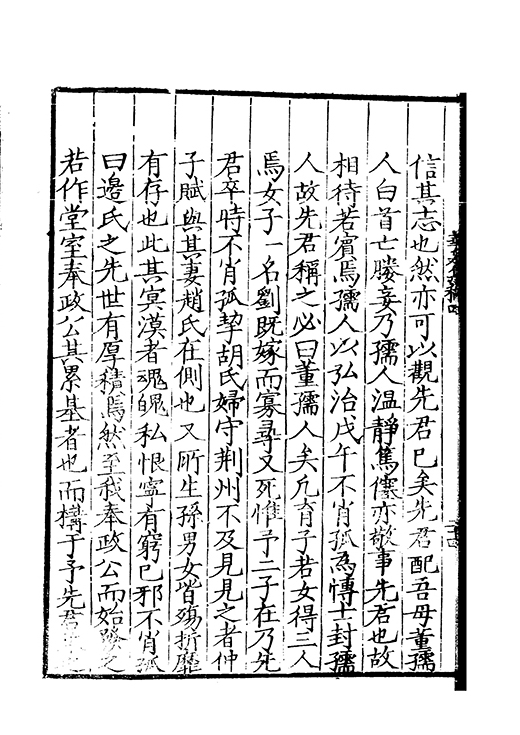 信其志也然亦可以觀先君已矣先君配吾母董孺
人白首亡媵妾乃孺人温靜篤僊亦敬事先君也故
相待若賓焉孺人以弘治戊午不肖孤爲愽士封孺
人故先君稱之必曰董孺人矣凢育子若女得三人
焉女子一名劉既嫁而寡尋又死惟予二子在乃先
君卒時不肖孤挈胡氏婦守荆州不及見見之者仲
子賦與其妻趙氏在側也又所生孫男女皆殤折靡
有存也此其冥漠者魂魄私恨寧有窮已邪不肖孤
曰邊氏之先世有厚積焉然至我奉政公而始發之
若作堂室奉政公其累基者也而構于予先君